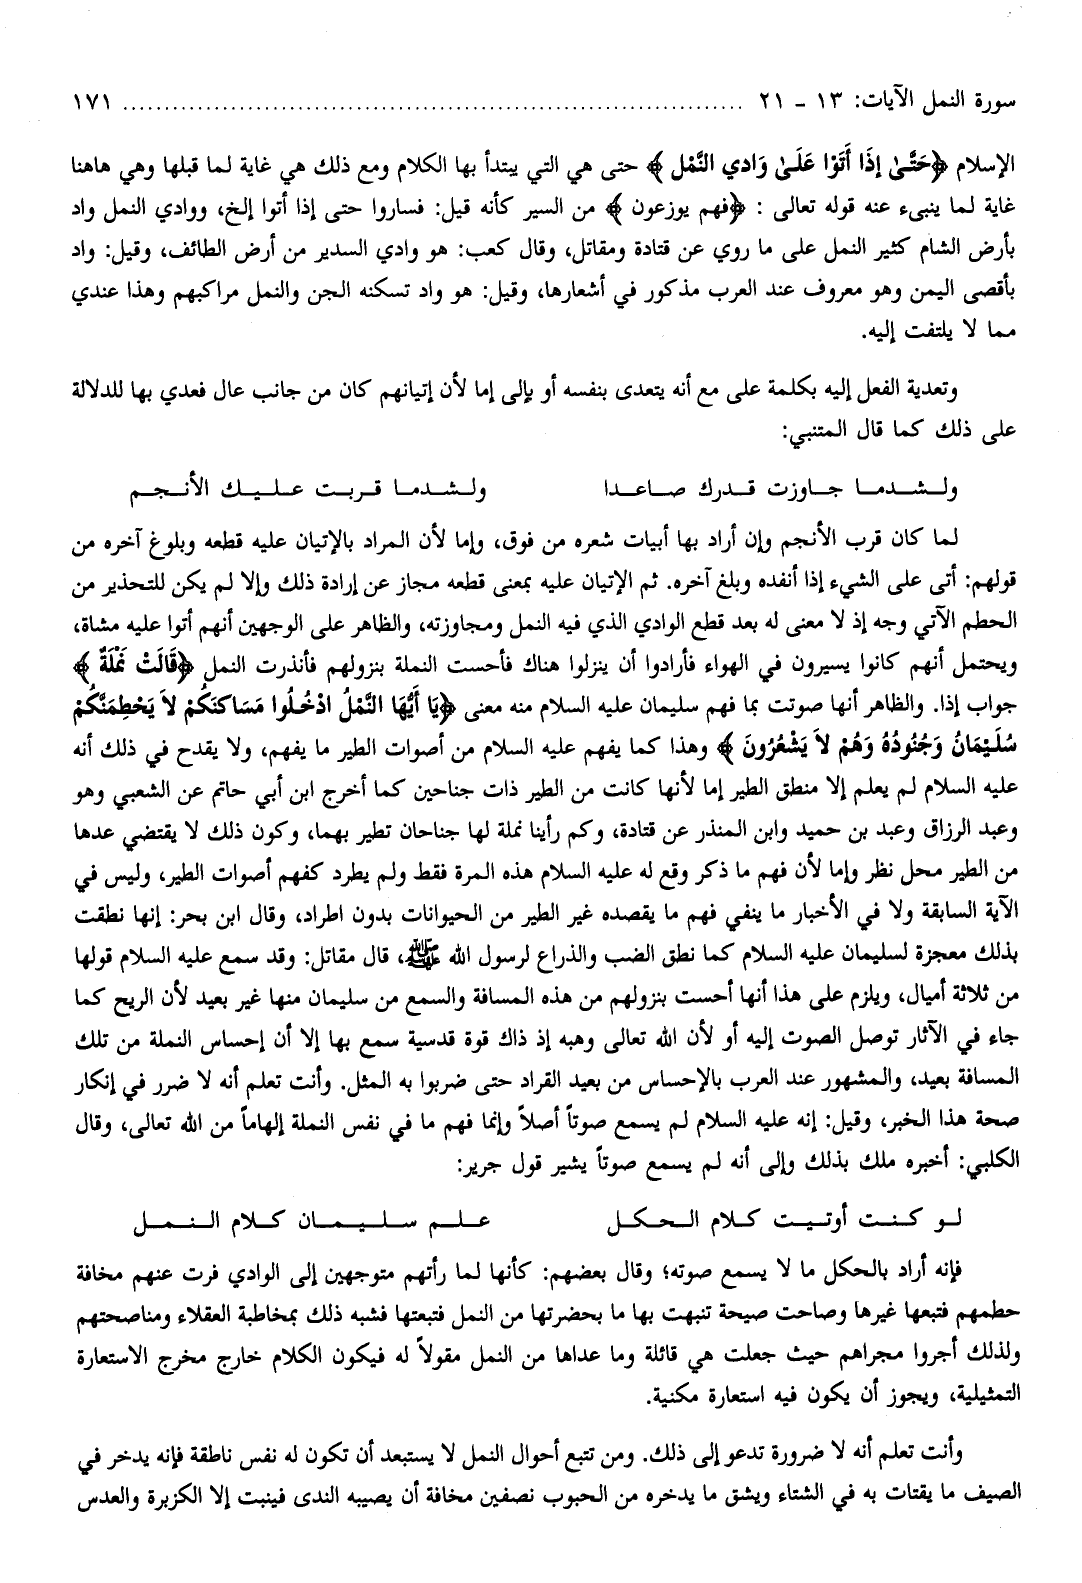 سورة النمل الآيات: ١٣ - ٢١ ........................................................................ ١٧١
الإسلام ﴿حَتَّىٰ إِذَا أَتَوْا عَلَىٰ وَادي النَّمْل﴾ حتى هي التي يبتدأ بها الكلام ومع ذلك هي غاية لما قبلها وهي هاهنا
غاية لما ينبىء عنه قوله تعالى : ﴿فهم يوزعون﴾ من السير كأنه قيل: فساروا حتى إذا أتوا إلخ، ووادي النمل واد
بأرض الشام كثير النمل على ما روي عن قتادة ومقاتل، وقال كعب: هو وادي السدير من أرض الطائف، وقيل: واد
بأقصى اليمن وهو معروف عند العرب مذكور في أشعارها، وقيل: هو واد تسكنه الجن والنمل مراكبهم وهذا عندي
مما لا يلتفت إليه.
وتعدية الفعل إليه بكلمة على مع أنه يتعدى بنفسه أو بإلى إما لأن إتيانهم كان من جانب عال فعدي بها للدلالة
على ذلك كما قال المتنبي:
ولـشـدمـا جـاوزت قـدرك صـاعـدا ولـشدمـا قـربت عـلـيـك الأنـجـم
لما كان قرب الأنجم وإن أراد بها أبيات شعره من فوق، وإما لأن المراد بالإتيان عليه قطعه وبلوغ آخره من
قولهم: أتى على الشيء إذا أنفده وبلغ آخره. ثم الإتيان عليه بمعنى قطعه مجاز عن إرادة ذلك وإلا لم يكن للتحذير من
الحطم الآتي وجه إذ لا معنى له بعد قطع الوادي الذي فيه النمل ومجاوزته، والظاهر على الوجهين أنهم أتوا عليه مشاة،
ويحتمل أنهم كانوا يسيرون في الهواء فأرادوا أن ينزلوا هناك فأحست النملة بنزولهم فأنذرت النمل ﴿قَالَتْ نَمْلَةٌ﴾
جواب إذا. والظاهر أنها صوتت بما فهم سليمان عليه السلام منه معنى ﴿يَا أَيُّهَا النَّمْلُ ادْخُلُوا مَسَاكنَكُمْ لاَ يَحْطِمَنَّكُمْ
سُلَيْمَانُ وَجُنُودُهُ وَهُمْ لاَ يَشْعُرُونَ﴾ وهذا كما يفهم عليه السلام من أصوات الطير ما يفهم، ولا يقدح في ذلك أنه
عليه السلام لم يعلم إلا منطق الطير إما لأنها كانت من الطير ذات جناحين كما أخرج ابن أبي حاتم عن الشعبي وهو
وعبد الرزاق وعبد بن حميد وابن المنذر عن قتادة، وكم رأينا نملة لها جناحان تطير بهما، وكون ذلك لا يقتضي عدها
من الطير محل نظر وإما لأن فهم ما ذكر وقع له عليه السلام هذه المرة فقط ولم يطرد كفهم أصوات الطير، وليس في
الآية السابقة ولا في الأخبار ما ينفي فهم ما يقصده غير الطير من الحيوانات بدون اطراد، وقال ابن بحر: إنها نطقت
بذلك معجزة لسليمان عليه السلام كما نطق الضب والذراع لرسول الله ﷺ، قال مقاتل: وقد سمع عليه السلام قولها
من ثلاثة أميال، ويلزم على هذا أنها أحست بنزولهم من هذه المسافة والسمع من سليمان منها غير بعيد لأن الريح كما
جاء في الآثار توصل الصوت إليه أو لأن الله تعالى وهبه إذ ذاك قوة قدسية سمع بها إلا أن إحساس النملة من تلك
المسافة بعيد، والمشهور عند العرب بالإحساس من بعيد القراد حتى ضربوا به المثل. وأنت تعلم أنه لا ضرر في إنكار
صحة هذا الخبر، وقيل: إنه عليه السلام لم يسمع صوتاً أصلاً وإنما فهم ما في نفس النملة إلهاماً من الله تعالى، وقال
الكلبي: أخبره ملك بذلك وإلى أنه لم يسمع صوتاً يشير قول جرير:
لـو كـنـت أوتـيـت كـلام الـحـكل عـلـم سـلـيـمـان كـلام الـنـمـل
فإنه أراد بالحكل ما لا يسمع صوته؛ وقال بعضهم: كأنها لما رأتهم متوجهين إلى الوادي فرت عنهم مخافة
حطمهم فتبعها غيرها وصاحت صيحة تنبهت بها ما بحضرتها من النمل فتبعتها فشبه ذلك بمخاطبة العقلاء ومناصحتهم
ولذلك أجروا مجراهم حيث جعلت هي قائلة وما عداها من النمل مقولاً له فيكون الكلام خارج مخرج الاستعارة
التمثيلية، ويجوز أن يكون فيه استعارة مكنية.
وأنت تعلم أنه لا ضرورة تدعو إلى ذلك. ومن تتبع أحوال النمل لا يستبعد أن تكون له نفس ناطقة فإنه يدخر في
الصيف ما يقتات به في الشتاء ويشق ما يدخره من الحبوب نصفين مخافة أن يصيبه الندى فينبت إلا الكزبرة والعدس